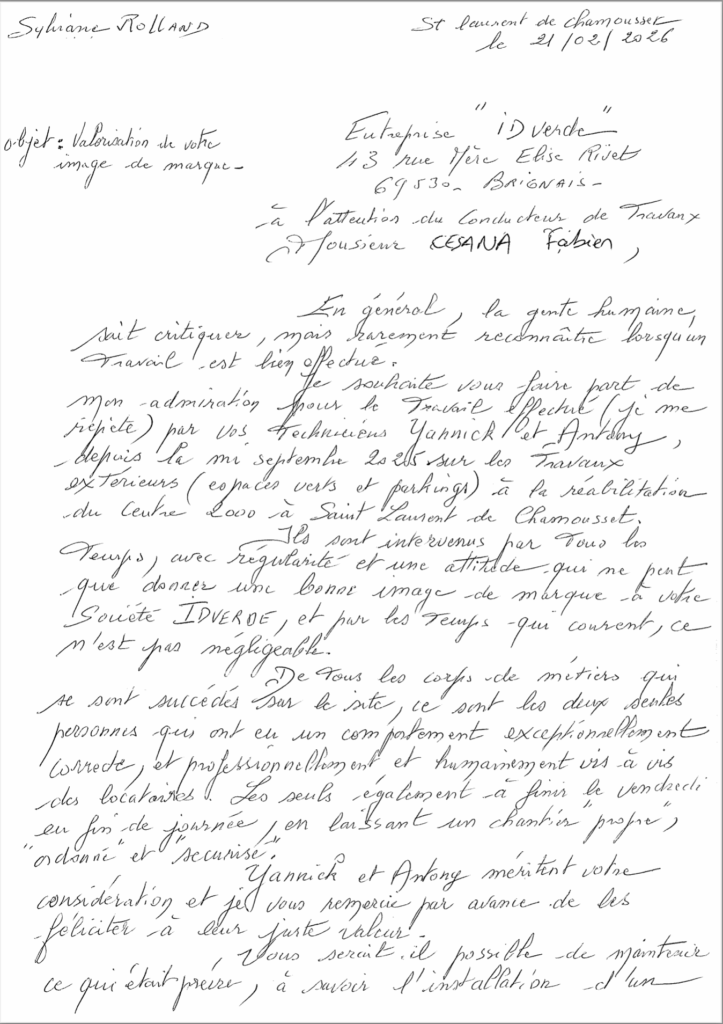 Sylviane ROLLAND
St laurent de chamousset
le 21/02/2026
objet: Valorisation de votre
image de marque-
Entreprise "IDverde"
43 rue Mère Elise Rivet
69530- BRIGNAIS-
à l'attention du Conducteur de Travaux
Monsieur CESANA Fabien,
En général, la gente humaine,
sait critiquer, mais rarement reconnaître lorsqu'un
Travail est bien effectué.
Je souhaite vous faire part de
mon admiration pour le Travail effectué (je me
répète) par vos Techniciens Yannick et Antony,
depuis la mi septembre 2025 sur les Travaux
extérieurs (espaces verts et parkings) à la réabilitation
du Centre 2000 à Saint Laurent de Chamousset.
Ils sont intervenus par Tous les
Temps, avec régularité et une attitude qui ne peut
que donner une bonne image de marque à votre
Société IDVERDE, et par les Temps qui courent, ce
n'est pas négligeable.
De Tous les corps de métiers qui
se sont succédés sur le site, ce sont les deux seules
personnes qui ont eu un comportement exceptionnellement
correcte, et professionnellement et humainement vis à vis
des locataires. Les seuls également à finir le vendredi
en fin de journée, en laissant un chantier "propre",
"ordonné" et "sécurisé".
Yannick et Antony méritent votre
considération et je vous remercie par avance de les
féliciter à leur juste valeur.
Vous serait-il possible de maintenir
ce qui était prévu, à savoir l'installation d'un